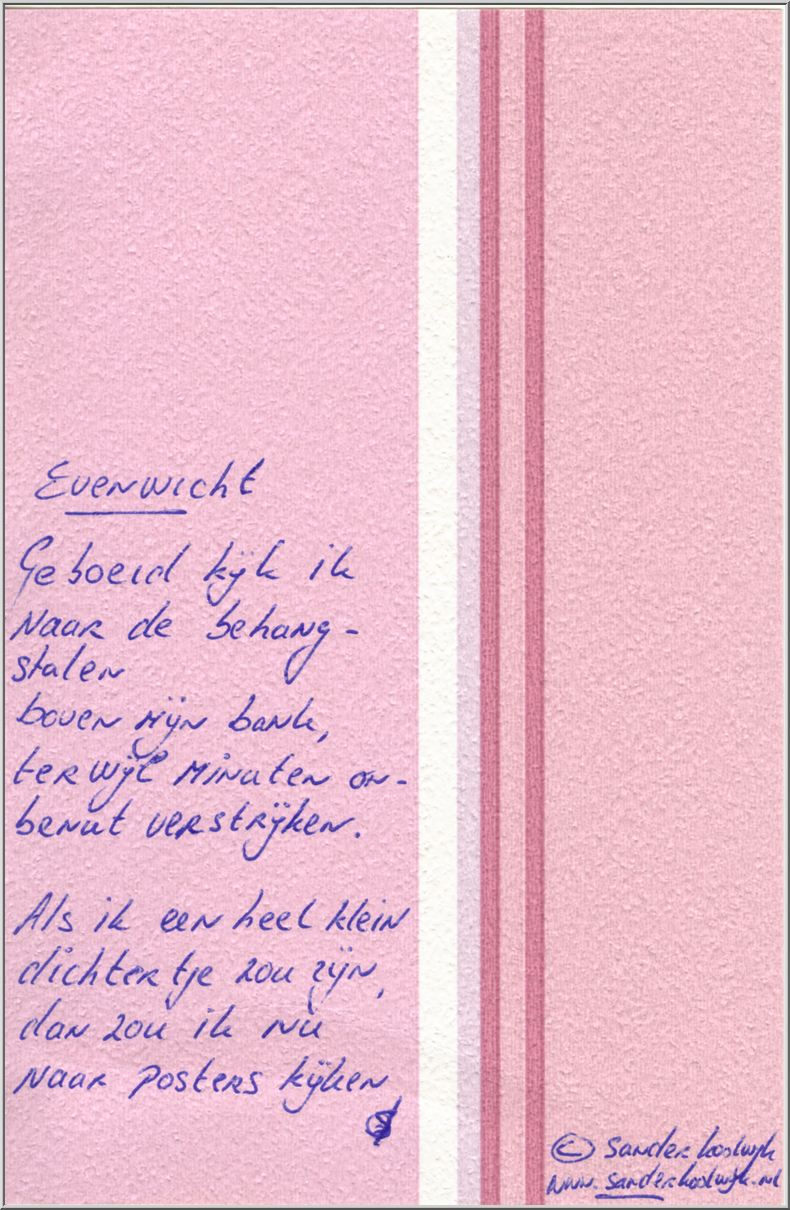 Evenwicht
Geboeid kijk ik
Naar de behang-
stalen
boven mijn bank,
terwijl minuten on-
benut verstrijken.
Als ik een heel klein
dichtertje zou zijn,
dan zou ik nu
Naar posters kijken
© Sander Koolwijk
www.sanderkoolwijk.nl